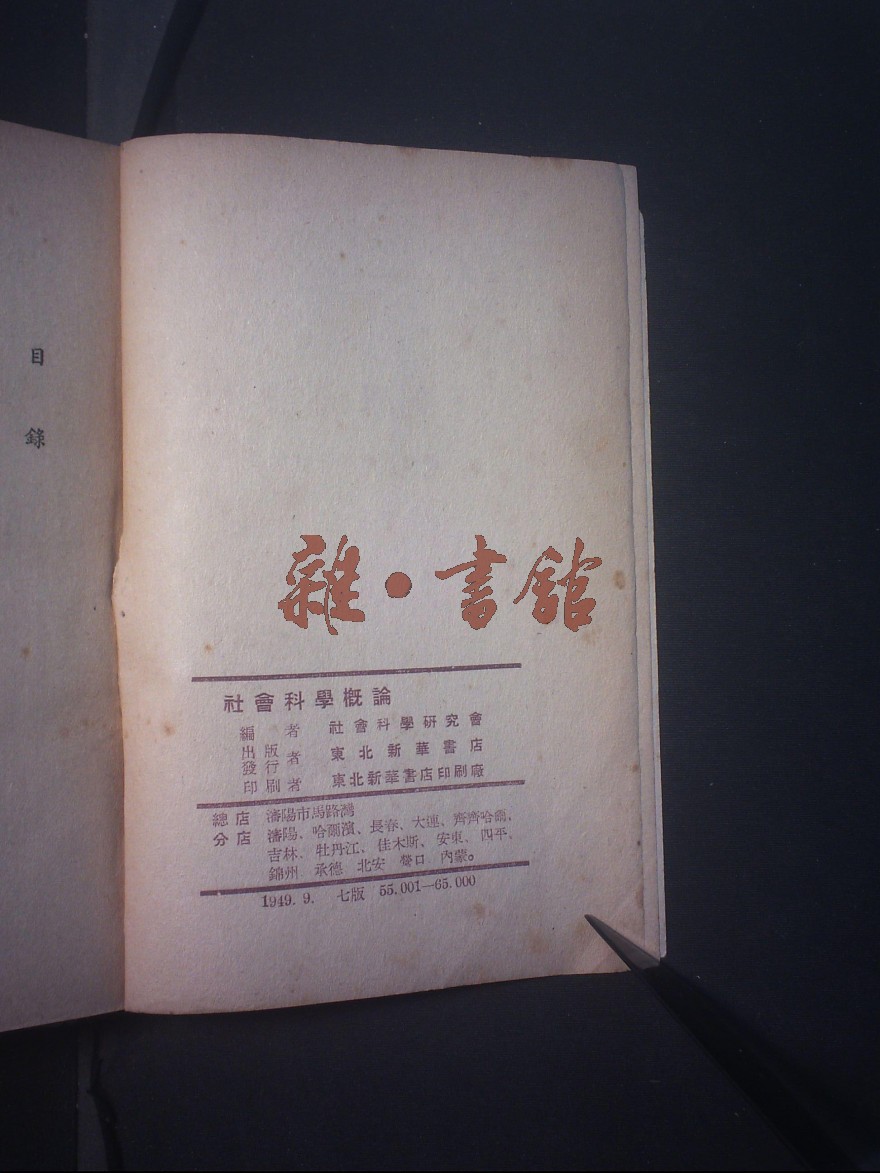 目錄
雜·書館
社會科學概論
編者 社會科學研究會
出版者 發行 東北新華書店
印刷者 東北新華書店印刷廠
總店 瀋陽市馬路灣
分店 瀋陽、哈爾濱、長春、大連、齊齊哈爾、
吉林、牡丹江、佳木斯、安東、四平、
錦州 承德 北安 營口 內蒙。
1949.9. 七版 55.001—65.000